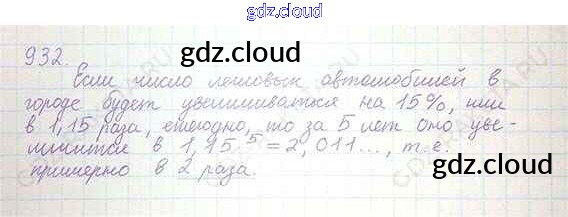 gdz.cloud
932.
gdz.cloud
Если число легковых автомобилей в
городе будет увеличиваться на 15%, или
в 1,15 раза, ежегодно, то за 5 лет оно уве-
личится в 1,15⁵ = 2,011..., т.е.
примерно в 2 раза.
gdz.cloud
gdz.cloud